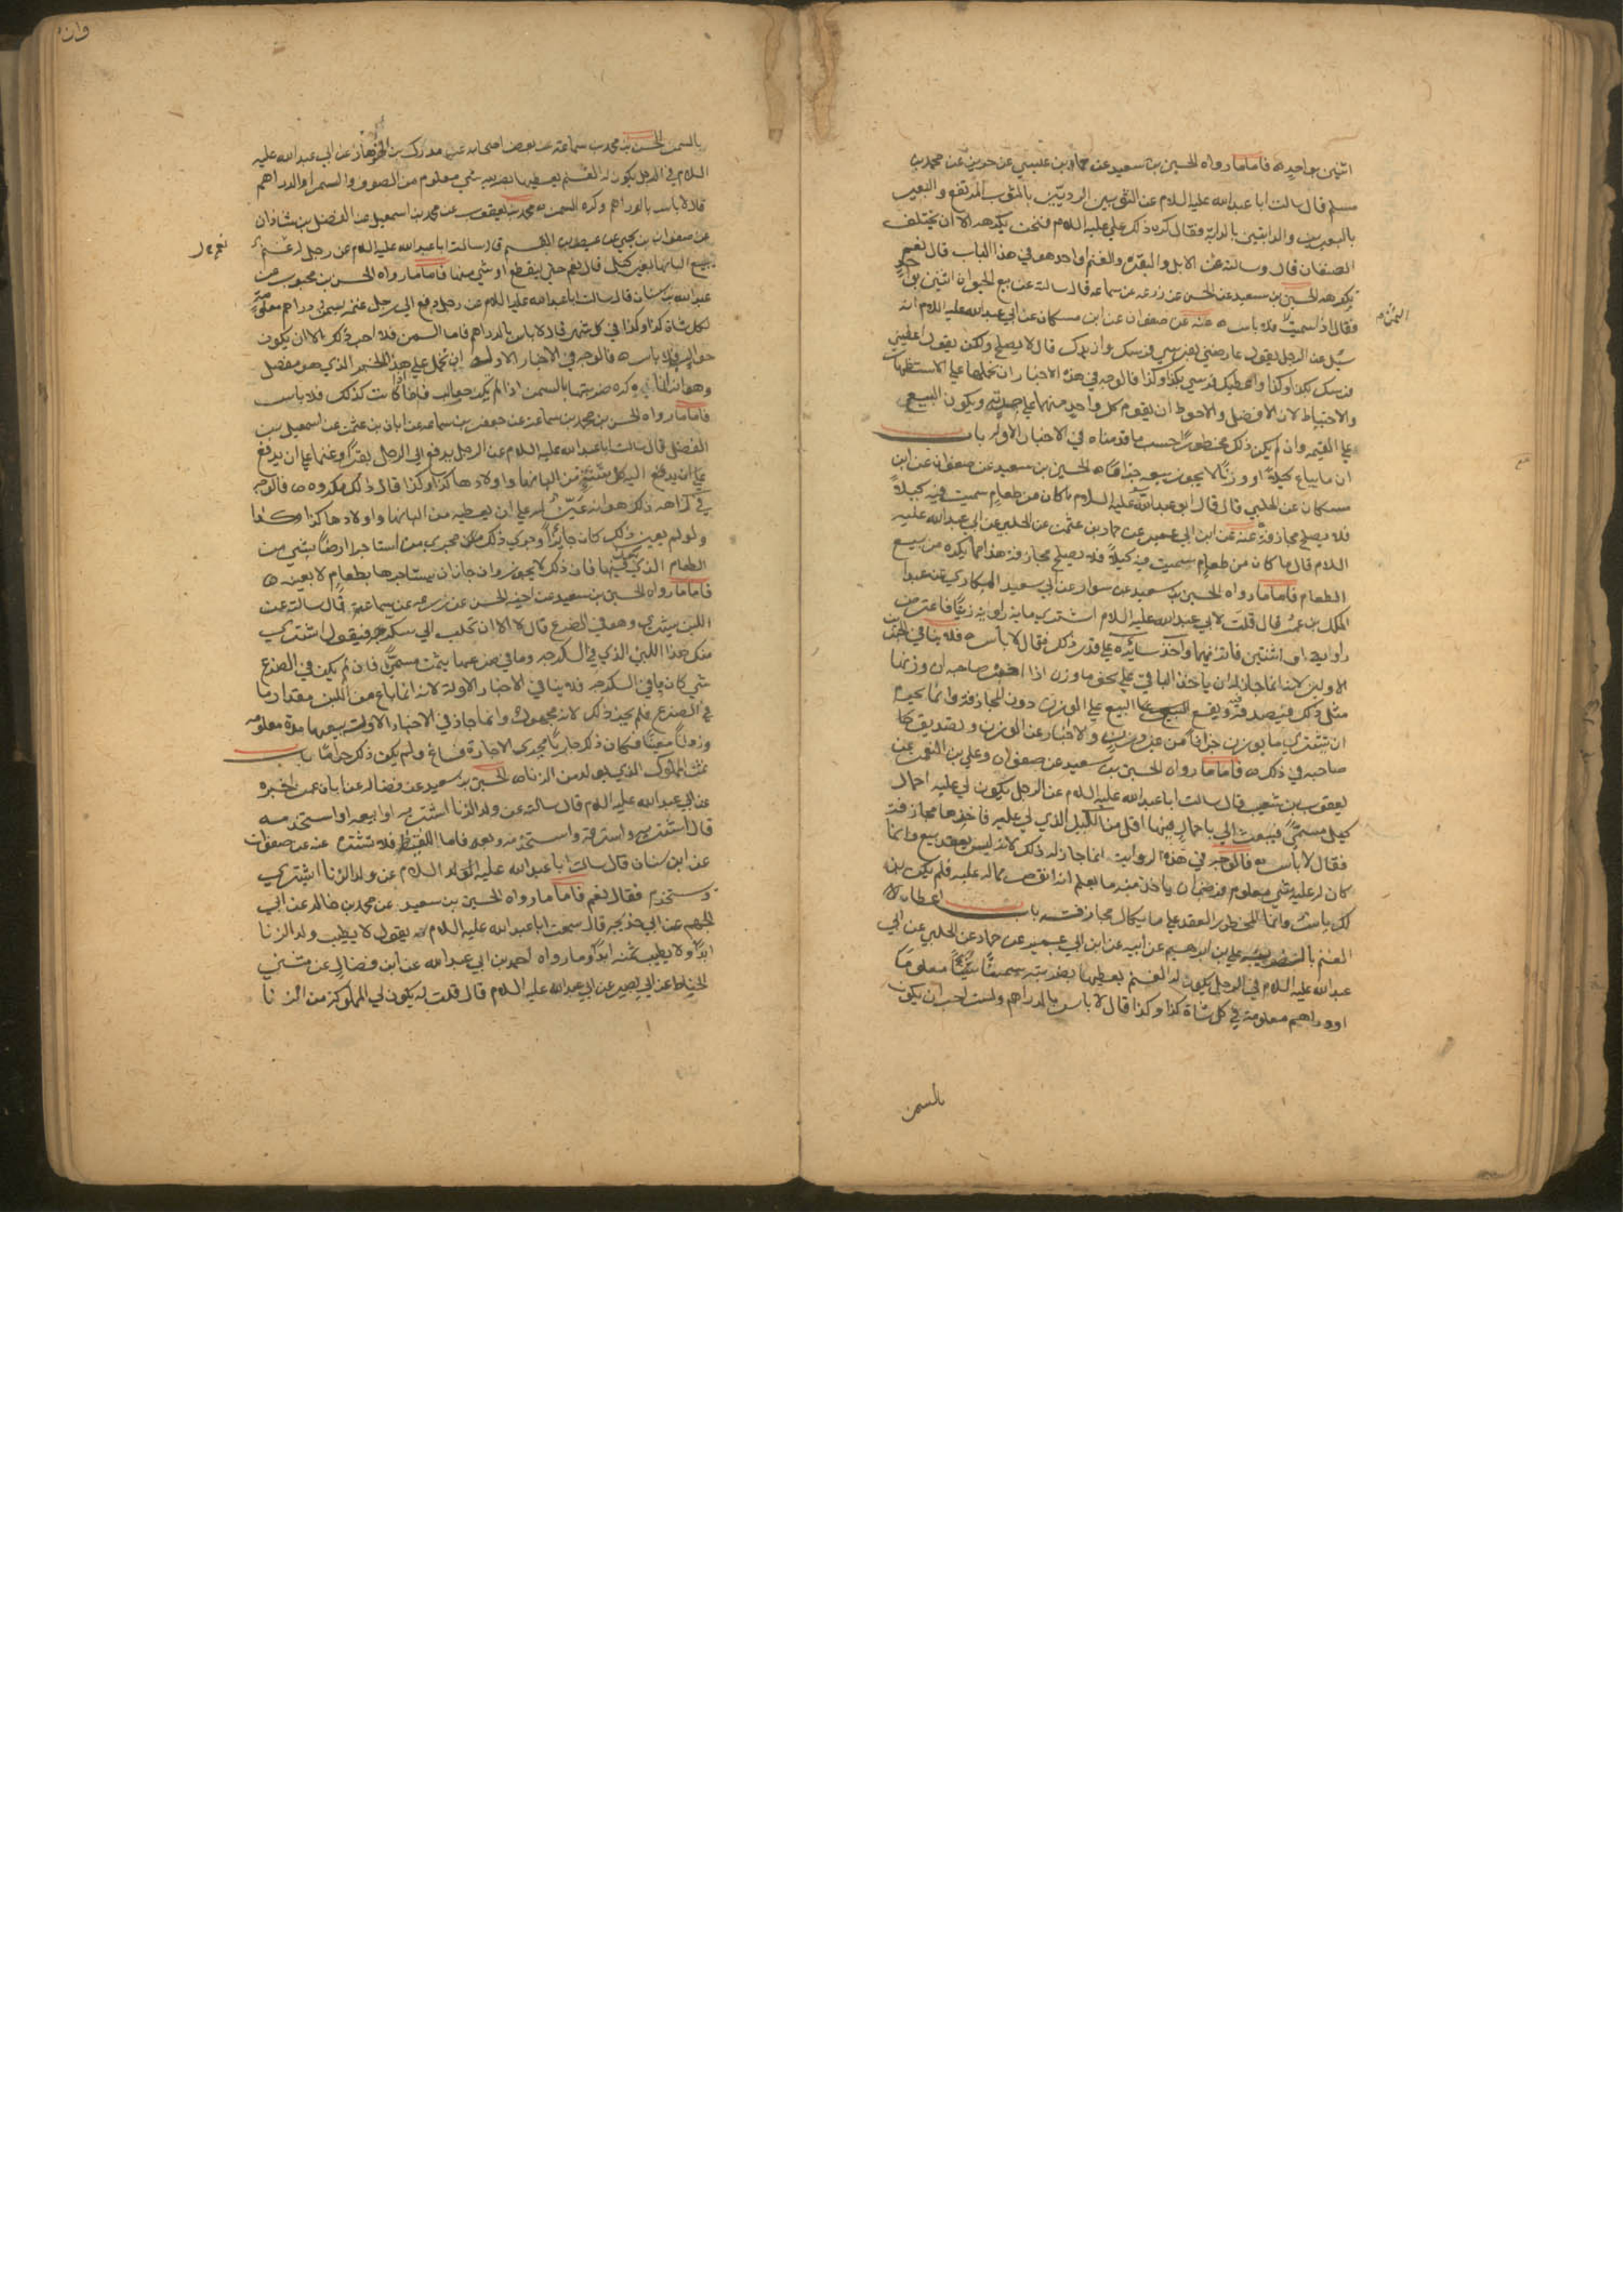 اثنين بواحد ه فاما ما رواه الحسين بن سعيد عن حماد بن عيسى عن حريز عن محمد بن
مسلم قال سالت ابا عبدالله عليه السلام عن الثوبين الرديين بالثوب المرتفع والبعير
بالبعيرين والدابتين بالدابة فقال كره ذلك علي عليه السلام فنحن نكرهه الا ان يختلف
الصنفان قال وسالته عن الابل والبقر والغنم او احدهن في هذا الباب قال نعم
نكرهه الحسين بن سعيد عن الحسن عن زرعه عن سماعه قال سالته عن بيع الحيوان اثنين بواحد
فقال اذا سميت فلا باس ه عنه عن صفوان عن ابن مسكان عن ابي عبدالله عليه السلام انه
الثمن م
سئل عن الرجل يقول عاوضني بفرسي فرسك وازيدك قال لا يصلح ولكن يقول اعطني
فرسك بكذا وكذا واعطيك فرسي بكذا وكذا فالوجه في هذه الاخبار ان نحملها على الاستظهار
والاحتياط لان الافضل والاحوط ان يقوم كل واحد منهما على جهته ويكون البيع
على القيمه وان لم يكن ذلك محظورا حسب ما قدمناه في الاخبار الاوله باب
ان ما يباع كيلا او وزنا لا يجوز بيعه جزافا ه الحسين بن سعيد عن صفوان عن ابن
مسكان عن الحلبي قال قال ابو عبدالله عليه السلام ما كان من طعام سميت فيه كيلا
فلا يصلح مجازفة عنه عن ابن ابي عمير عن حماد بن عثمن عن الحلبي عن ابي عبدالله عليه
السلام قال ما كان من طعام سميت فيه كيلا فلا يصلح مجازفة هذا مما يكره من بيع
الطعام فاما ما رواه الحسين بن سعيد عن سوار عن ابي سعيد المكاري عن عبد
الملك بن عمر قال قلت لابي عبدالله عليه السلام اشتري مايه راويه زيتا فاعترض
راويه او اثنتين فاتزنهما واخذ سائره على قدر ذلك فقال لا باس ه فلا ينافي الخبرين
الاولين لانه انما جاز له ان ياخذ الباقي على نحو ما وزن اذا اخبره صاحبه ان وزنها
مثل ذلك فيصدقه ويقع البيع على الوزن دون المجازفة وانما يحرم
ان يشتري ما يوزن جزافا من غير وزن ولا اخبار عن الوزن وتصديق كا
صاحبه في ذلك ه فاما ما رواه الحسين بن سعيد عن صفوان وعلي بن النعمن عن
يعقوب بن شعيب قال سالت ابا عبدالله عليه السلام عن الرجل يكون لي عليه احمال
كيل مسمى فيبعث الي باحمال فيها اقل من الكيل الذي لي عليه فاخذها مجازفة
فقال لا باس به فالوجه في هذه الرواية انما جاز له ذلك لانه ليس بعقد بيع وانما
كان له عليه شي معلوم فرضي ان ياخذ منه ما يعلم انه انقص مما له عليه فلم يكن به
لك باس وانما المحظور العقد على ما يكال مجازفة باب اعطاء لا
الغنم بالضريبه علي بن ابرهيم عن ابيه عن ابن ابي عمير عن حماد عن الحلبي عن ابي
عبدالله عليه السلام في الرجل يكون له الغنم يعطيها بضريبه سمنا شيئا معلوما
او دراهم معلومة في كل شاة كذا وكذا قال لا باس بالدراهم ولست احب ان يكون
بالسمن
وان
بالسمن الحسن بن محمد بن سماعة عن بعض اصحابه عن مدرك بن الهزهاز عن ابي عبدالله عليه
السلام في الرجل يكون له الغنم يعطيها بضريبه شي معلوم من الصوف والسمن او الدراهم
قال لا باس بالدراهم وكره السمن ه محمد بن يعقوب عن محمد بن اسمعيل عن الفضل بن شاذان
عن صفوان بن يحيى عن عيص بن القسم قال سالت ابا عبدالله عليه السلام عن رجل له غنم
يبيع البانها بغير كيل قال نعم حتى ينقطع او شي منها فاما ما رواه الحسن بن محبوب عن
عبدالله بن سنان قال سالت ابا عبدالله عليه السلام عن رجل دفع الى رجل غنمه بسمن ودراهم معلومة
لكل شاة كذا وكذا في كل شهر قال لا باس بالدراهم فاما السمن فلا احب ذلك الا ان يكون
حوالب فلا باس ه فالوجه في الاخبار الاوله ان نحمل على هذا الخبر الذي هو مفصل
وهو انه انما كره ضريبتها بالسمن اذا لم يكن حوالب فاذا كانت كذلك فلا باس
فاما ما رواه الحسن بن محمد بن سماعة عن جعفر بن سماعه عن ابان بن عثمن عن اسمعيل بن
الفضل قال سالت ابا عبدالله عليه السلام عن الرجل يدفع الى الرجل بقرا وغنما على ان يدفع
اليه كل سنة من البانها واولادها كذا وكذا قال ذلك مكروه ه فالوجه
في كراهه ذلك هو انه عين له على ان يعطيه من البانها واولادها كذا وكذا
ولو لم يعين ذلك كان جايزا وجرى ذلك مجرى من استاجر ارضا بشي من
الطعام الذي يكون فيها فان ذلك لا يجوز وان جاز ان يستاجرها بطعام لا بعينه ه
فاما ما رواه الحسين بن سعيد عن اخيه الحسن عن زرعه عن سماعة قال سالته عن
اللبن يشترى وهو في الضرع قال لا الا ان تحلب الى سكرجه فيقول اشتري
منك هذا اللبن الذي في السكرجه وما في ضرعها بثمن مسمى فان لم يكن في الضرع
شي كان ما في السكرجه فلا ينافي الاخبار الاولة لانه انما باع من اللبن مقدار ما
في الضرع فلم يجز ذلك لانه مجهول وانما جاز في الاخبار الاولة بيعها مدة معلومه
وزمانا معينا فكان ذلك جاريا مجرى الاجارة فساغ ولم يكن ذلك حراما باب
ثمن المملوك الذي يولد من الزنا ه الحسين بن سعيد عن فضاله عن ابان عمن اخبره
عن ابي عبدالله عليه السلام قال سالته عن ولد الزنا اشتريه او ابيعه او استخدمه
قال اشتريه واسترقه واستخدمه وبعه فاما اللقيط فلا تشتره عنه عن صفوان
عن ابن سنان قال سالت ابا عبدالله عليه السلام عن ولد الزنا اشتري
ويستخدم فقال نعم فاما ما رواه الحسين بن سعيد عن محمد بن خالد عن ابي
الجهم عن ابي خديجه قال سمعت ابا عبدالله عليه السلام يقول لا يطيب ولد الزنا
ابدا ولا يطيب ثمنه ابدا وما رواه احمد بن ابي عبدالله عن ابن فضال عن مثنى
الحناط عن ابي بصير عن ابي عبدالله عليه السلام قال قلت له يكون لي المملوكة من الزنا